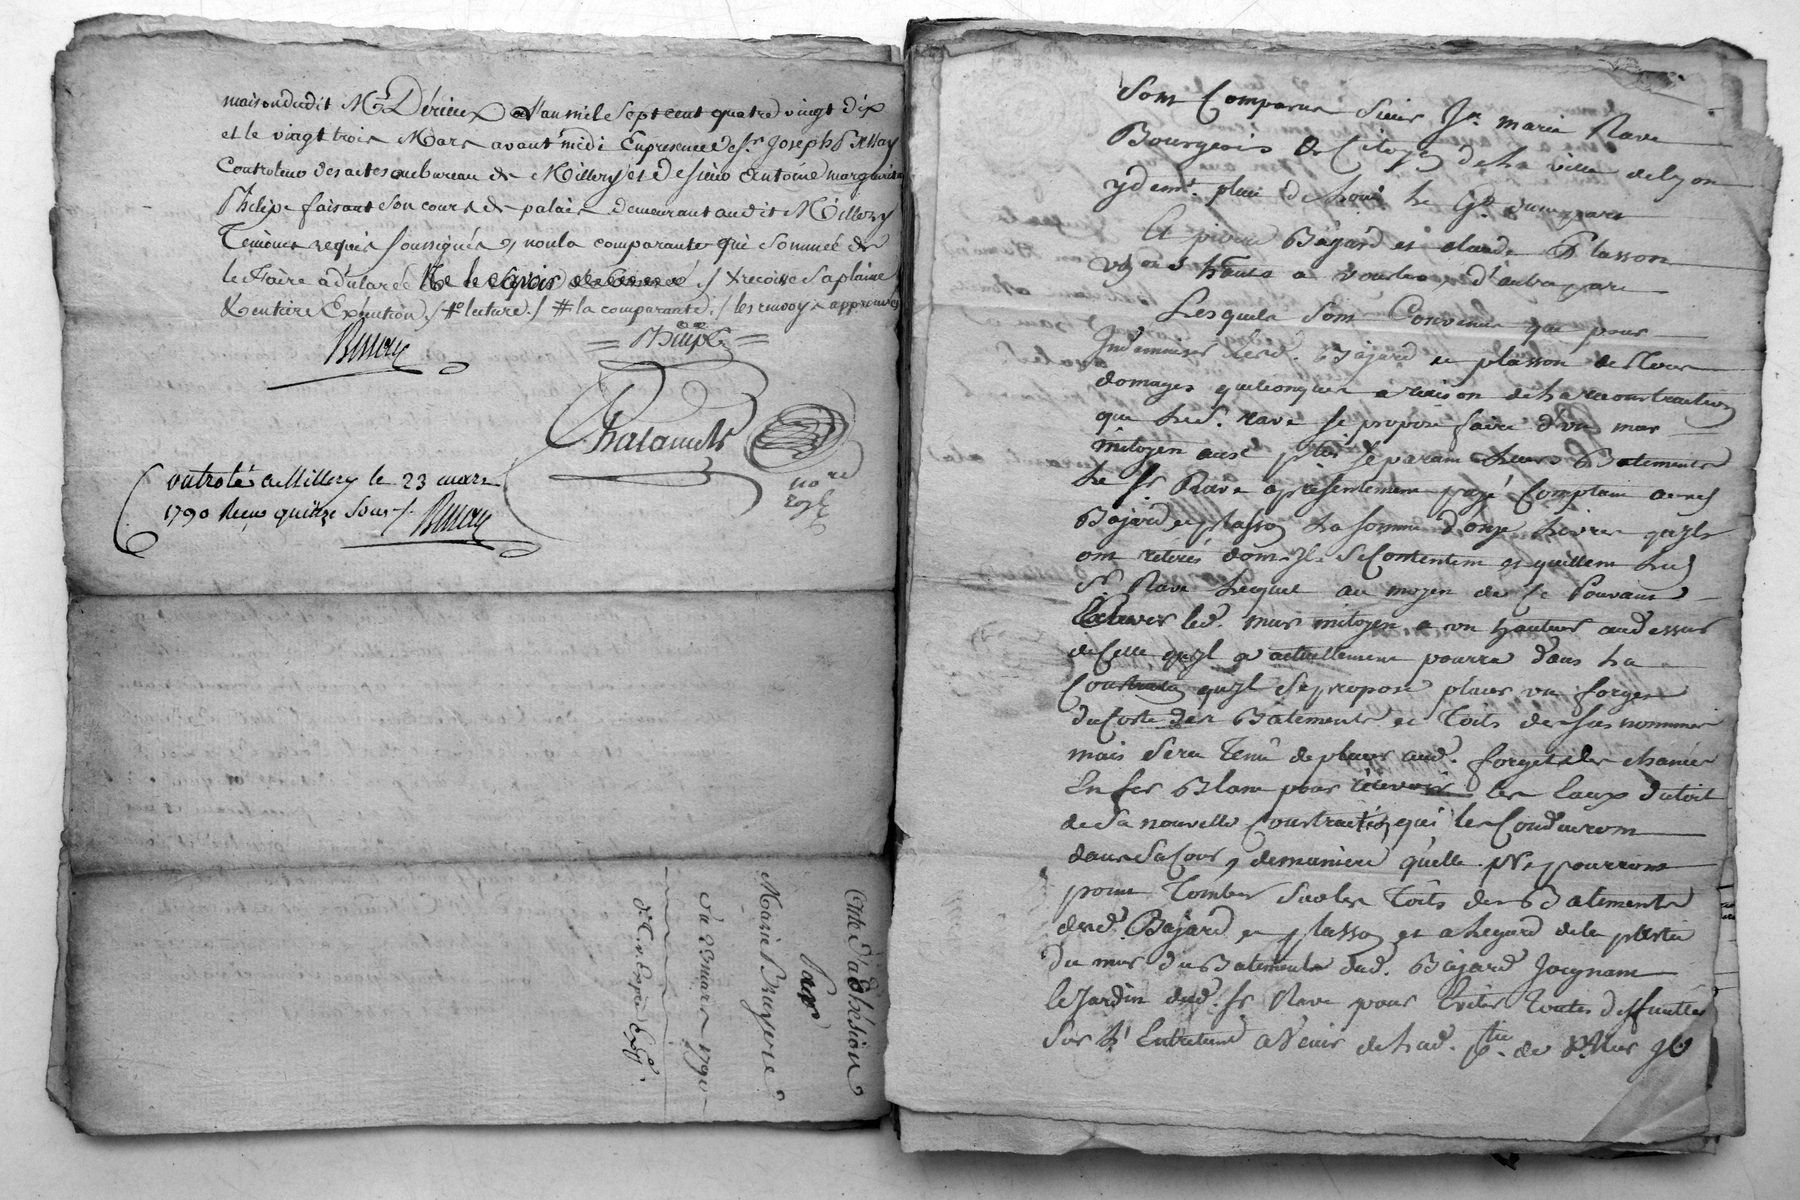 maison dudit Me Dérieux L'an mil sept cent quatre vingt dix
et le vingt trois Mars avant midi En presence de Sr Joseph
Controleur des actes au bureau de Millery et de sieur Antoine marguerite
Phelipe faisant son cours de palais demeurant audit Millery
Temoins requis soussignés et non la comparante qui sommée de
le faire a déclaré ./ recoisse sa plaine
& entiere Execution ./ lecture ./ # la comparante ./ les renvoys approuvés
Chalandr
no re
royl
Controlé a Millery le 23 mars
1790 Reçu quinze sous ./.
Acte d'adhésion
par
Marie Bruyere
Du 23 mars 1790
Sont Comparus Sieur Jn. marie Rave
Bourgeois & Citoyen de la ville de Lyon
y demt. place de d'une part
Et pierre Bajard et claude Plasson
a vourles d'autre part
Lesquels sont Convenus que pour
Indemniser lesd. Bajard et plasson de tous
domages quelconques a raison de la reconstruction
que led. Sr. Rave se propose faire d'un mur
mitoyen aux pties separant leurs Batiments
le Sr. Rave a presentement payé Comptant auxd
Bajard et plasson la somme d'onze Livres qu'ils
ont retirés dont ils se Contentent et quittent led
Sr. Rave Lequel au moyen de ce Pouvant
Eslever led. mur mitoyen a un hauteur audessus
de Celle qu'il a actuellement pourra dans la
Construction qu'il se propose placer un forget
du Costé des Batiments et Toits des sus nommés
mais sera Tenu de placer aud. forget des chanées
En fer Blanc pour recevoir les Eaux du toit
de sa nouvelle Construction, qui les Conduiront
dans sa Cour, de maniere qu'elle Ne pourront
point Tomber sur les Toits des Batiments
desd. Bajard et plasson et a l'egard de la partie
du mur du Batiment dud. Bajard Joignant
le Jardin dud. Sr Rave pour Eviter Toutes difficultés
sur L'Entretient a Venir de lad. ptie. de Mur